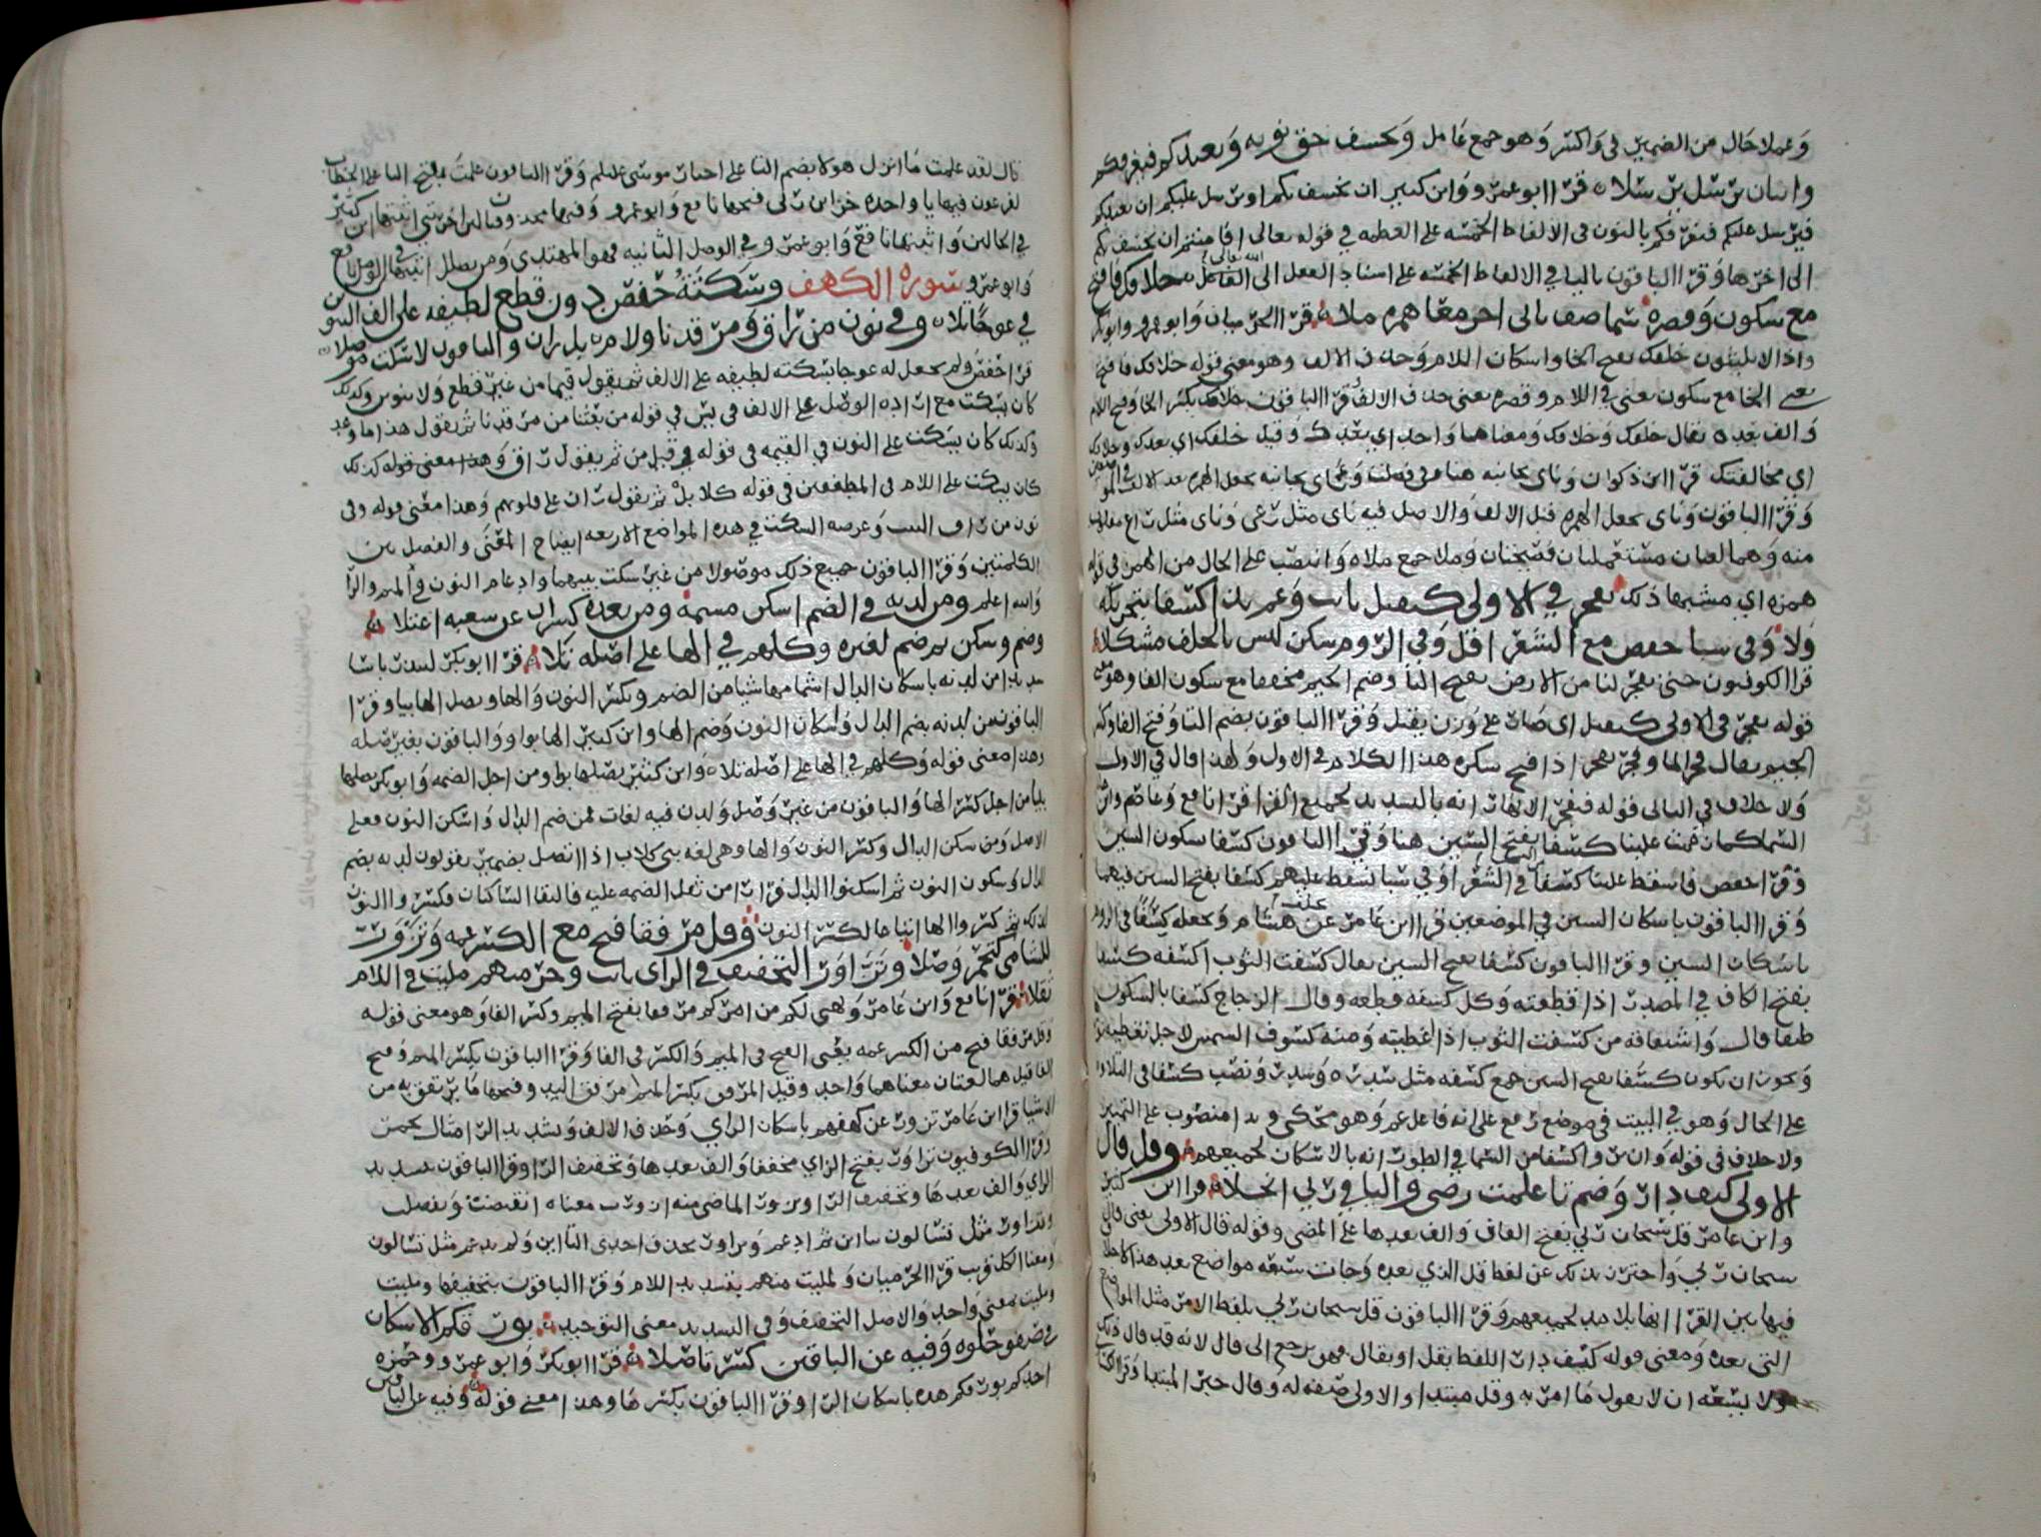 وعملا حال من الضمير في واكسر وهو جمع عامل ويخسف حق نونه ويعيدكم فيغرقكم
واثنان يرسل يرسلا قرا ابو عمرو وابن كثير ان نخسف بكم او نرسل عليكم ان نعيدكم
فنرسل عليكم فنغرقكم بالنون في الالفاظ الخمسه على العظمه في قوله تعالى افامنتم ان يخسف بكم
الى اخرها وقرا الباقون باليا في الالفاظ الخمسه على اسناد الفعل الى الفاعل الله تعالى خلافك فافتح
مع سكون وقصره سما صف ناى اخر معا همزه ملا قرا الحرميان وابو عمرو وابو بكر
واذا لا يلبثون خلفك بفتح الخا واسكان اللام وحذف الالف وهو معنى قوله خلافك فافتح
يعني الخا مع سكون يعني في اللام وقصره يعني حذف الالف وقرا الباقون خلافك بكسر الخا وفتح اللام
والف بعده يقال خلفك وخلافك ومعناهما واحد اي بعدك وقيل خلفك اي بعدك وخلافك
اي مخالفتك قرا ابن ذكوان وناى بجانبه هنا وفي فصلت وناى بجانبه بجعل الهمزه بعد الالف في الموضعين
وقرا الباقون وناى بجعل الهمزه قبل الالف والاصل فيه ناى مثل رعى وناى مثل راع مقلوب
منه وهما لغتان مستعملتان فصيحتان وملا جمع ملاه وانتصب على الحال من الهمز في قوله
همزه اي مشبها ذلك تفجر في الاولى كتقتل ثابت وعم ندا كسفا بتحريكه
ولا وفي سبا حفص مع الشعرا قل وفي الروم سكن ليس بالخلف مشكلا
قرا الكوفيون حتى تفجر لنا من الارض بفتح التا وضم الجيم مخففا مع سكون الفا وهو معنى
قوله تفجر في الاولى كتقتل اي ضمان على وزن يقتل وقرا الباقون بضم التا وفتح الفا وكسر
الجيم يقال فجر الما وفجر يفجر اذا فتح سكره هذا الكلام في الاول ولهذا قال في الاولى
ولا خلاف في الثاني قوله فتفجر الانهار انه بالتشديد لجميع القرا قرا نافع وعاصم وابن
السما كما زعمت علينا كسفا بفتح السين هنا وقرا الباقون كسفا بسكون السين
وقرا حفص فاسقط علينا كسفا في الشعرا وفي سبا نسقط عليهم كسفا بفتح السين فيهما
وقرا الباقون باسكان السين في الموضعين قرا ابن عامر عن هشام ويجعله كسفا في الروم
باسكان السين وقرا الباقون كسفا بفتح السين يقال كسفت الثوب اكسفه كسفا
بفتح الكاف في المصدر اذا قطعته وكل كسفه قطعه وقال الزجاج كسفا بالسكون
طبقا قال واشتقاقه من كسفت الثوب اذا غطيته ومنه كسوف الشمس لاجل تغطيته
ويجوز ان يكون كسفا بفتح السين جمع كسفه مثل سدره وسدر ونصب كسفا في التلاوه
على الحال وهو في البيت في موضع رفع على انه فاعل عم وهو محكي وندا منصوب على التمييز
ولا خلاف في قوله وان يروا كسفا من السما في الطور انه بالاسكان لجميعهم وقل قال
الاولى كيف دار وضم تا علمت رضى واليا في ربي انجلا قرا ابن كثير
وابن عامر قل سبحان ربي بفتح القاف والف بعدها على المضى وقوله قال الاولى يعنى قال
سبحان ربي واحترز بذلك عن لفظ قل الذي بعده وجات سبعه مواضع بعد هذا لا خلاف
فيها بين القرا انها بلا مد لجميعهم وقرا الباقون قل سبحان ربي بلفظ الامر مثل المواضع
التي بعده ومعنى قوله كيف دار اللفظ بقل او بقال فهو يرجع الى قال لانه قد قال ذلك
ولا يسعه ان لا يقول ما امر به وقل مبتدا والاولى صفه له وقال خبر المبتدا وقرا الكسائي
قال لقد علمت ما انزل هولا بضم التا على اخبار موسى عليلم وقرا الباقون علمت بفتح التا على الخطاب
لفرعون فيها يا واحده خزاين ربي فتحها نافع وابو عمرو وفيها محذوفتان لئن اخرتني اثبتها ابن كثير
في الحالين واثبتها نافع وابو عمرو في الوصل الثانيه فهو المهتدي ومن يضلل اثبتها في الوصل نافع
وابو عمرو سورة الكهف وسكته حفص دون قطع لطيفه على الف التنوين
في عوجا بلا وفي نون من راق ومرقدنا ولام بل ران والباقون لا سكت موصلا
قرا حفص ولم يجعل له عوجا بسكته لطيفه على الالف ثم يقول قيما من غير قطع ولا تنوين وكذلك
كان يسكت مع اراده الوصل على الالف في يس في قوله من بعثنا من مرقدنا ثم يقول هذا ما وعد
وكذلك كان يسكت على النون في القيمه في قوله وقيل من ثم يقول راق وهذا معنى قوله كذلك
كان يسكت على اللام في المطففين في قوله كلا بل ثم يقول ران على قلوبهم وهذا معنى قوله وفي
نون من راق البيت وغرضه السكت في هذه المواضع الاربعه ايضاح المعنى والفصل بين
الكلمتين وقرا الباقون جميع ذلك موصولا من غير سكت بينهما وادغام النون والميم والرا
والله اعلم ومن لدنه في الضم اسكن مشمه ومن بعده كسران عن شعبه اعتلا
وضم وسكن ثم ضم لغيره وكلهم في الها على اصله تلا قرا ابو بكر لينذر باسا
شديدا من لدنه باسكان الدال اشمامها شيا من الضم وبكسر النون والها ويصل الها بيا وقرا
الباقون من لدنه بضم الدال واسكان النون وضم الها وابن كثير الها بواو والباقون بغير صله
وهذا معنى قوله وكلهم في الها على اصله تلا وابن كثير يصلها بواو من اجل الضمه وابو بكر يصلها
بيا من اجل كسر الها والباقون من غير وصل ولدن فيه لغات فمن ضم الدال واسكن النون فعلى
الاصل ومن سكن الدال وكسر النون والها وهى لغه بني كلاب اذا اتصل بضمير يقولون لدنه بضم
الدال وسكون النون ثم اسكنوا الدال فرارا من ثقل الضمه عليه فالتقا الساكنان فكسروا النون
لذلك ثم كسروا الها اتباعا لكسر النون وقل مرفقا فتح مع الكسر عمه وتزور
للشامي كتحمر وصلا وتزاور التخفيف في الزاى ثابت وحرميهم ملئت في اللام
ثقلا قرا نافع وابن عامر ويهيى لكم من امركم مرفقا بفتح الميم وكسر الفا وهو معنى قوله
وقل مرفقا فتح مع الكسر عمه يعنى الفتح في الميم والكسر في الفا وقرا الباقون بكسر الميم وفتح
الفا قيل هما لغتان معناهما واحد وقيل المرفق بكسر الميم مرفق اليد وفتحها ما يرتفق به من
الاشيا قرا ابن عامر تزور عن كهفهم باسكان الزاي وحذف الالف وتشديد الرا مثال تحمر
وقرا الكوفيون تزاور بفتح الزاي مخففا والف بعدها وتخفيف الرا وقرا الباقون بتشديد
الزاي والف بعدها وتخفيف الرا وتزور الماضي منه ازور معناه انقبضت وتفصلت
وتزاور مثل تتسالون تتا ابن ثم ادغم وتزاور بحذف احدى التا ابن ولم يدغم مثل تسالون
ومعنا الكل قريب قرا الحرميان ولملئت منهم بتشديد اللام وقرا الباقون بتخفيفها وملئت
وملئت بمعنى واحد والاصل التخفيف وفي التشديد معنى التوحيد بورقكم الاسكان
في صفو حلوه وفيه عن الباقين كسر تاصلا قرا ابو بكر وابو عمرو وحمزه
احدكم بورقكم هذه باسكان الرا وقرا الباقون بكسرها وهذا معنى قوله وفيه عن الباقين